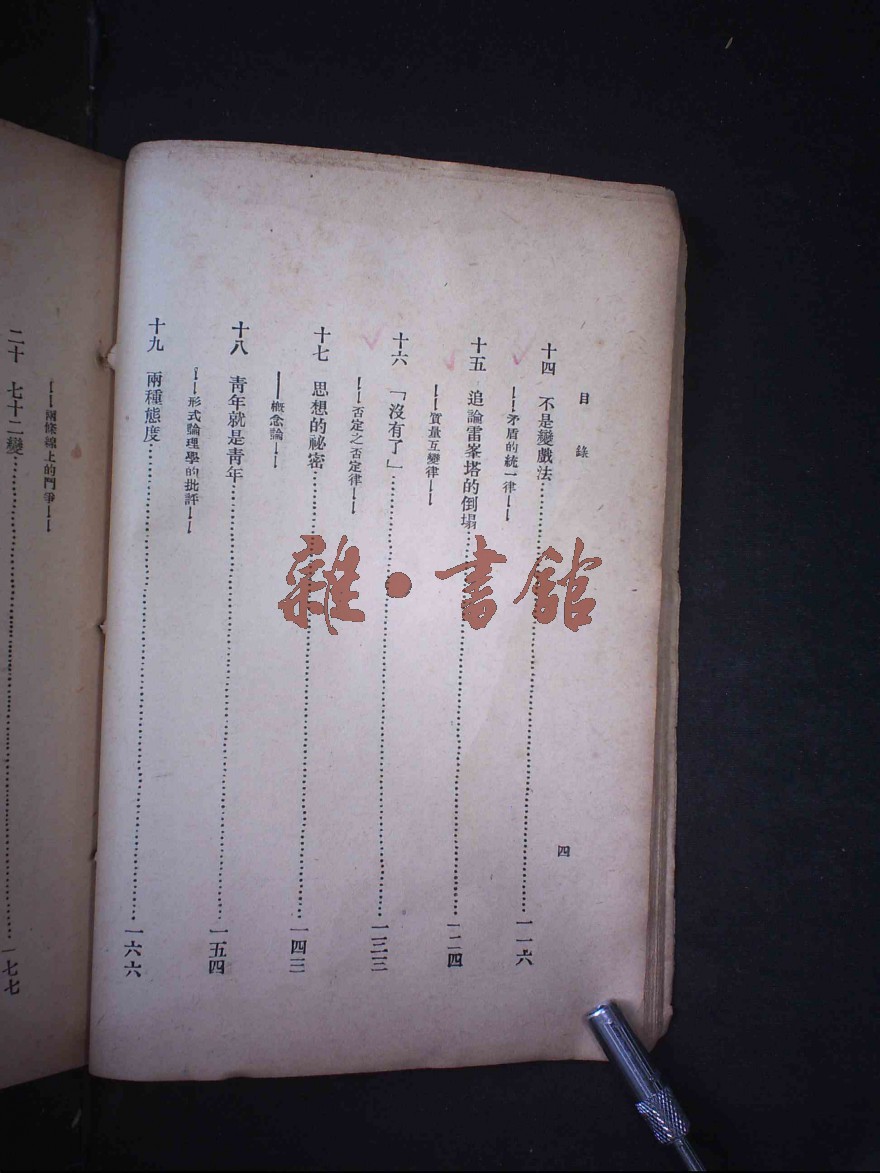 目錄
四
十四 不是變戲法……一一六
——矛盾的統一律——
十五 追論雷峯塔的倒塌……一二四
——質量互變律——
十六 「沒有了」……一三三
——否定之否定律——
十七 思想的祕密……一四三
——概念論——
十八 青年就是青年……一五四
——形式論理學的批評——
十九 兩種態度……一六六
——兩條線上的鬥爭——
二十 七十二變……一七七
雜·書館